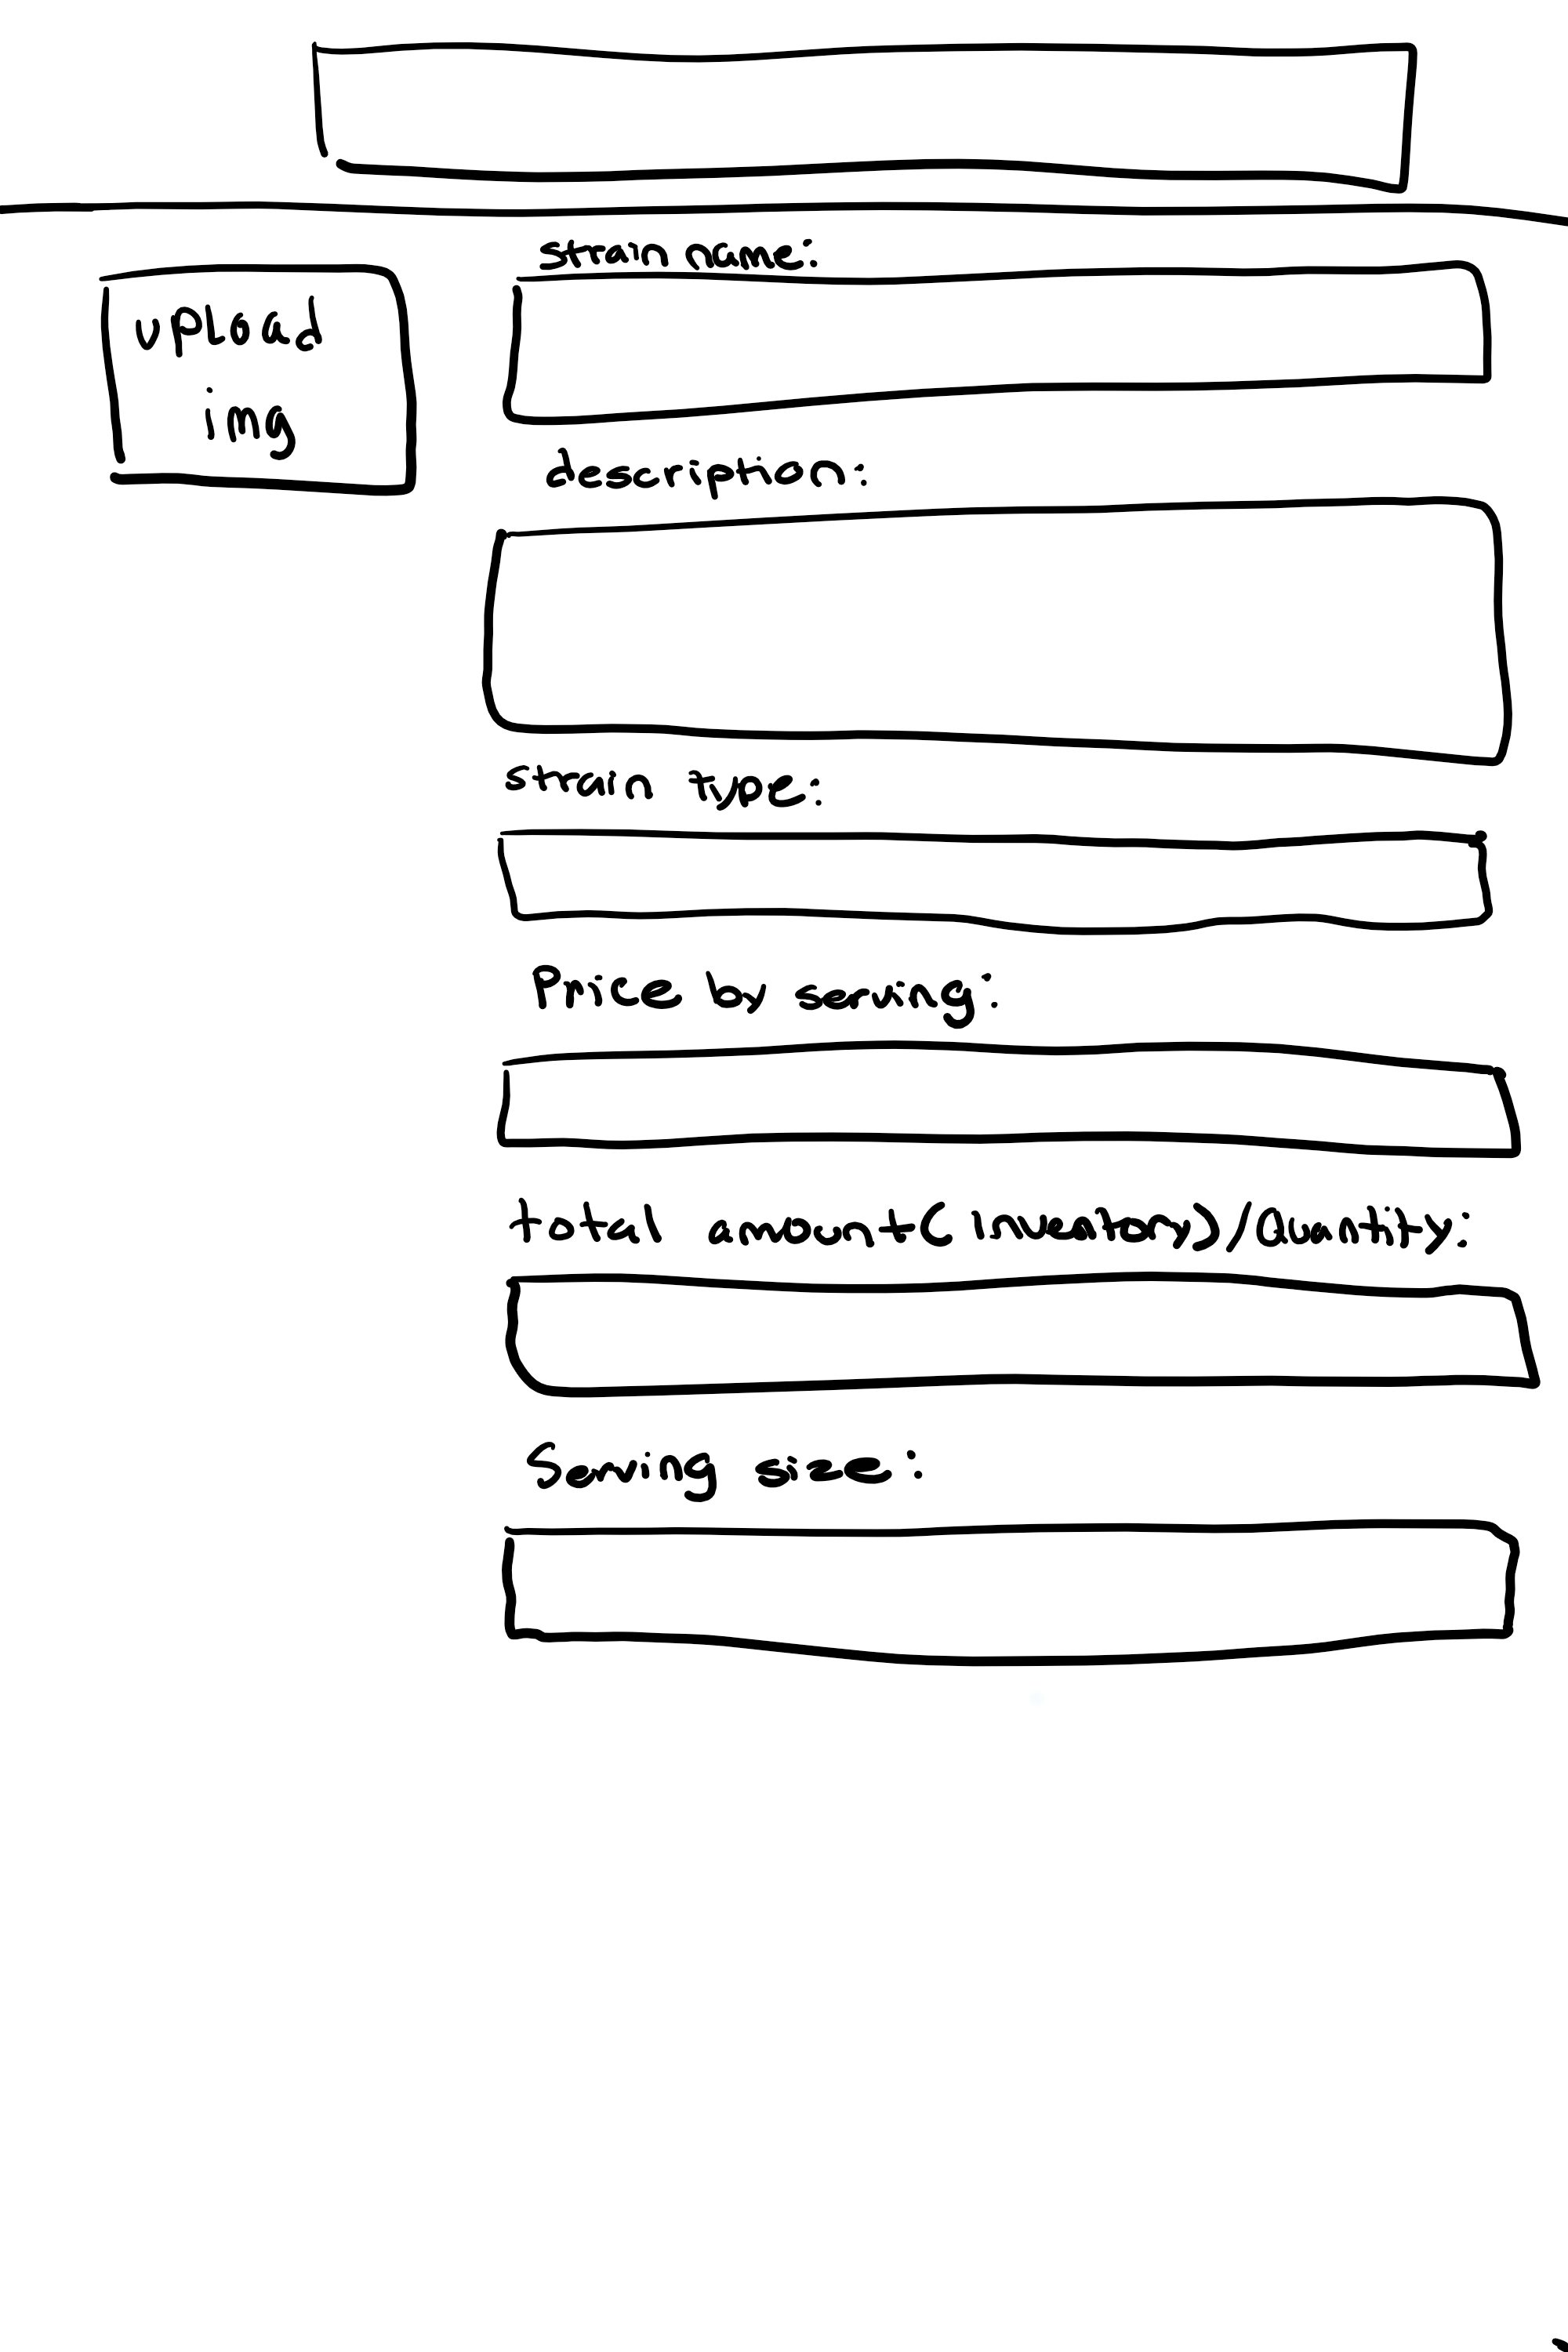 strain name:
upload
img
description:
strain type:
Price by serving:
total amount(inventory)/Quantity:
Serving size: